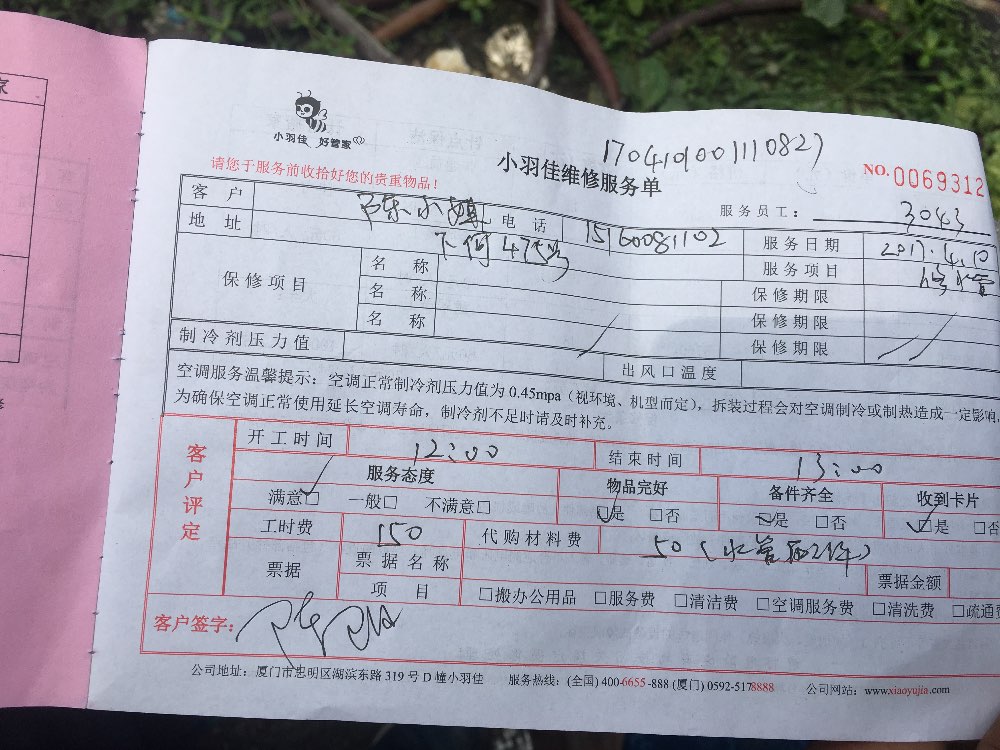 小羽佳 好管家
1704101001110827
小羽佳维修服务单
NO.0069312
请您于服务前收拾好您的贵重物品！
服务员工： 3043
客户 陈小姐 电话 15160081102 服务日期 2017.4.10
地址 下何475号 服务项目 修水管
保修项目 名称 保修期限
名称 保修期限
名称 保修期限
制冷剂压力值 出风口温度
空调服务温馨提示：空调正常制冷剂压力值为 0.45mpa（视环境、机型而定），拆装过程会对空调制冷或制热造成一定影响
为确保空调正常使用延长空调寿命，制冷剂不足时请及时补充。
客户评定
开工时间 12:00 结束时间 13:00
服务态度 物品完好 备件齐全 收到卡片
满意□ 一般□ 不满意□ □是 □否 □是 □否 □是 □否
工时费 150 代购材料费 50（水管配件）
票据 票据名称 票据金额
项目 □搬办公用品 □服务费 □清洁费 □空调服务费 □清洗费 □疏通费
客户签字：
公司地址：厦门市思明区湖滨东路 319 号 D 幢小羽佳 服务热线：(全国) 400-6655-888 (厦门) 0592-5178888 公司网站：www.xiaoyujia.com